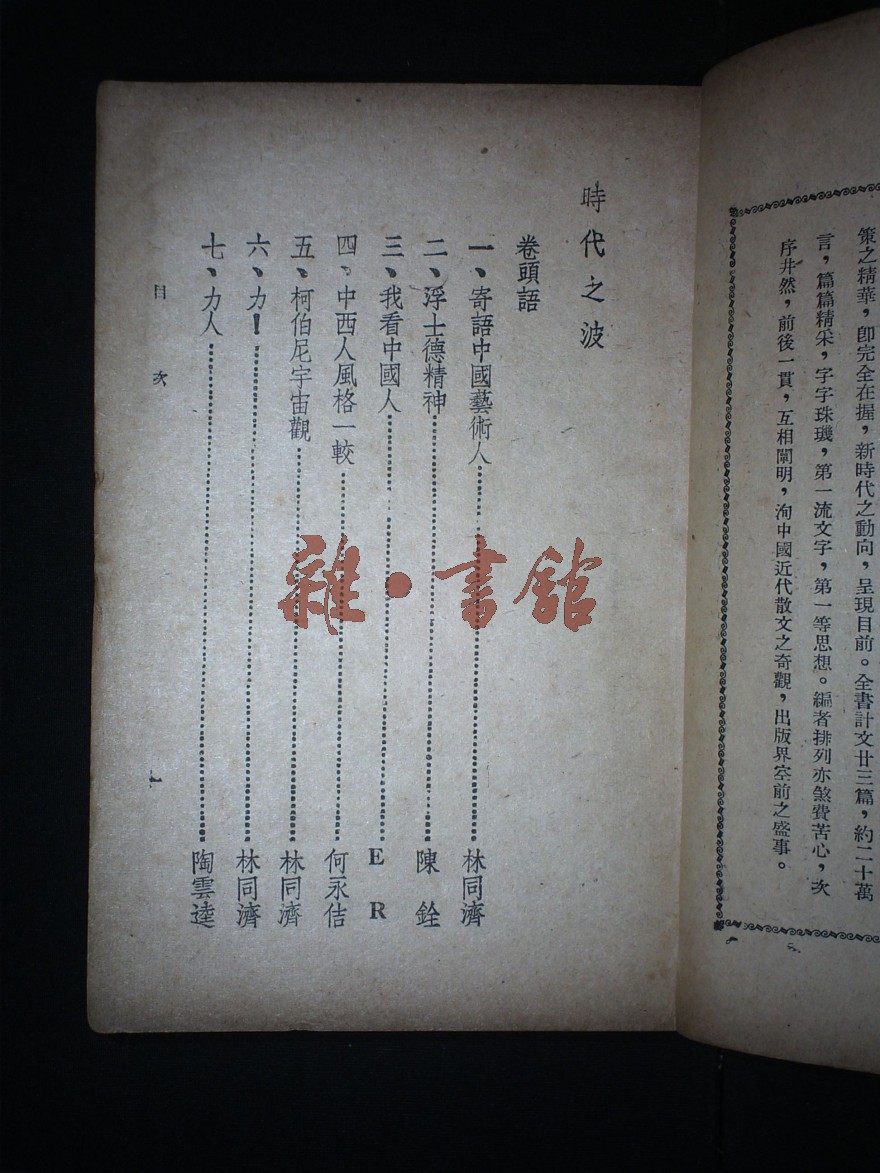 策之精華，卽完全在握，新時代之動向，呈現目前。全書計文廿三篇，約二十萬
言，篇篇精采，字字珠璣，第一流文字，第一等思想。編者排列亦煞費苦心，次
序井然，前後一貫，互相闡明，洵中國近代散文之奇觀，出版界空前之盛事。
時代之波
卷頭語
一、寄語中國藝術人……林同濟
二、浮士德精神……陳銓
三、我看中國人……E R
四、中西人風格一較……何永佶
五、柯伯尼宇宙觀……林同濟
六、力！……林同濟
七、力人……陶雲逵
目次
一
雜·書館